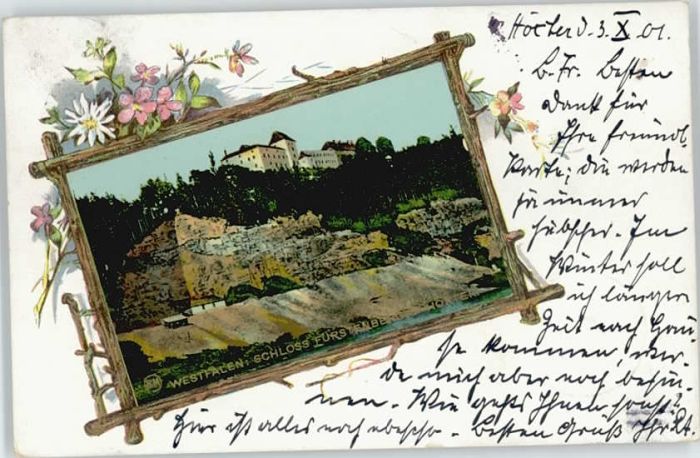 Höxter d. 3. X. 01.
B. Fr. Besten
Dank für
Ihre freundl.
Karte; die werden
ja immer
hübscher. Im
Winter soll
ich länger
Zeit nach Hau-
se kommen, wer-
de mich aber noch besin-
nen. Wie gehts Ihnen sonst?
Hier ist alles noch ebenso. Besten Gruß Ihr
WESTFALEN: SCHLOSS FÜRSTENBERG